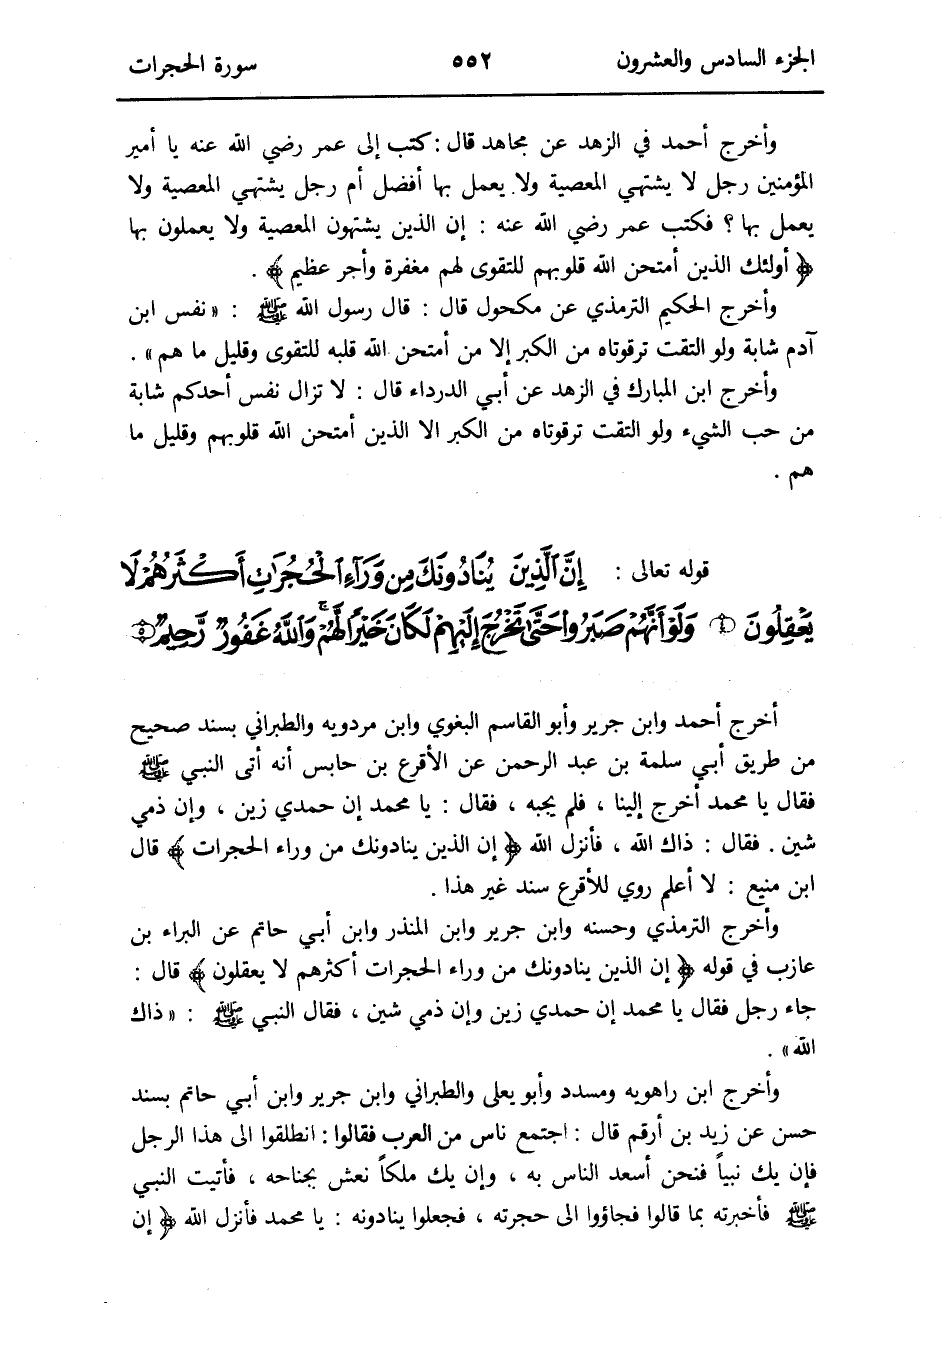 الجزء السادس والعشرون ٥٥٢ سورة الحجرات
وأخرج أحمد في الزهد عن مجاهد قال : كتب إلى عمر رضي الله عنه يا أمير
المؤمنين رجل لا يشتهي المعصية ولا يعمل بها أفضل أم رجل يشتهي المعصية ولا
يعمل بها ؟ فكتب عمر رضي الله عنه : إن الذين يشتهون المعصية ولا يعملون بها
﴿ أولئك الذين أمتحن الله قلوبهم للتقوى لهم مغفرة وأجر عظيم ﴾ .
وأخرج الحكيم الترمذي عن مكحول قال : قال رسول الله ﷺ : « نفس ابن
آدم شابة ولو التقت ترقوتاه من الكبر إلا من أمتحن الله قلبه للتقوى وقليل ما هم » .
وأخرج ابن المبارك في الزهد عن أبي الدرداء قال : لا تزال نفس أحدكم شابة
من حب الشيء ولو التقت ترقوتاه من الكبر الا الذين أمتحن الله قلوبهم وقليل ما
هم .
قوله تعالى : إِنَّ ٱلَّذِينَ يُنَادُونَكَ مِن وَرَآءِ ٱلْحُجُرَٰتِ أَكْثَرُهُمْ لَا
يَعْقِلُونَ ٤ وَلَوْ أَنَّهُمْ صَبَرُوا۟ حَتَّىٰ تَخْرُجَ إِلَيْهِمْ لَكَانَ خَيْرًا لَّهُمْ ۚ وَٱللَّهُ غَفُورٌ رَّحِيمٌ ٥
أخرج أحمد وابن جرير وأبو القاسم البغوي وابن مردويه والطبراني بسند صحيح
من طريق أبي سلمة بن عبد الرحمن عن الأقرع بن حابس أنه أتى النبي ﷺ
فقال يا محمد أخرج إلينا ، فلم يجبه ، فقال : يا محمد إن حمدي زين ، وإن ذمي
شين . فقال : ذاك الله ، فأنزل الله ﴿ إن الذين ينادونك من وراء الحجرات ﴾ قال
ابن منيع : لا أعلم روي للأقرع سند غير هذا .
وأخرج الترمذي وحسنه وابن جرير وابن المنذر وابن أبي حاتم عن البراء بن
عازب في قوله ﴿ إن الذين ينادونك من وراء الحجرات أكثرهم لا يعقلون ﴾ قال :
جاء رجل فقال يا محمد إن حمدي زين وإن ذمي شين ، فقال النبي ﷺ : « ذاك
الله » .
وأخرج ابن راهويه ومسدد وأبو يعلى والطبراني وابن جرير وابن أبي حاتم بسند
حسن عن زيد بن أرقم قال : اجتمع ناس من العرب فقالوا : انطلقوا الى هذا الرجل
فإن يك نبياً فنحن أسعد الناس به ، وإن يك ملكاً نعش بجناحه ، فأتيت النبي
ﷺ فأخبرته بما قالوا فجاؤوا الى حجرته ، فجعلوا ينادونه : يا محمد فأنزل الله ﴿ إن